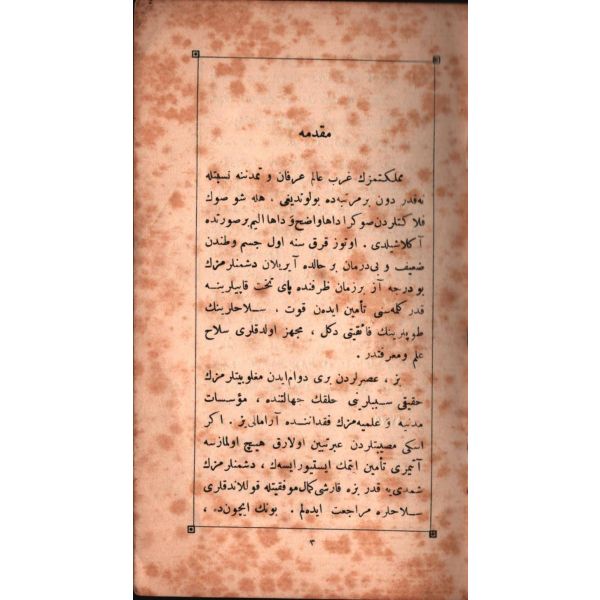 مقدمه
مملكتمزك غرب عالم عرفان و تمدننه نسبتله
نه‌قدر دون بر مرتبه‌ده بولوندیغی ، هله شو صوك
فلاكتلردن صوكرا داها واضح و داها الیم بر صورتده
آكلاشلدی . اوتوز قرق سنه اول جسم وطندن
ضعیف و بی‌درمان بر حالده آیریلان دشمنلرمزك
بو درجه آز بر زمان ظرفنده پای تخت قاپیلرینه
قدر كلمه‌سنی تأمین ایدن قوت . سلاحلرینك
طوپلرینك فائقیتی دكل ، مجهز اولدقلری سلاح
علم ومعرفتدر .
بز ، عصرلردن بری دوام ایدن مغلوبیتلرمزك
حقیقی سببلرینی خلقك جهالتنده ، مؤسسات
مدنیه و علمیه‌مزك فقداننده آرامالی‌یز . اكر
اسكی مصیبتلردن عبرتبین اولارق هیچ اولمازسه
آتیمزی تأمین ایتمك ایستیورایسه‌ك ، دشمنلرمزك
شمدی‌یه قدر بزه قارشی كمال موفقیتله قوللاندقلری
سلاحلره مراجعت ایده‌لم . بونك ایچون‌ده ،
٣